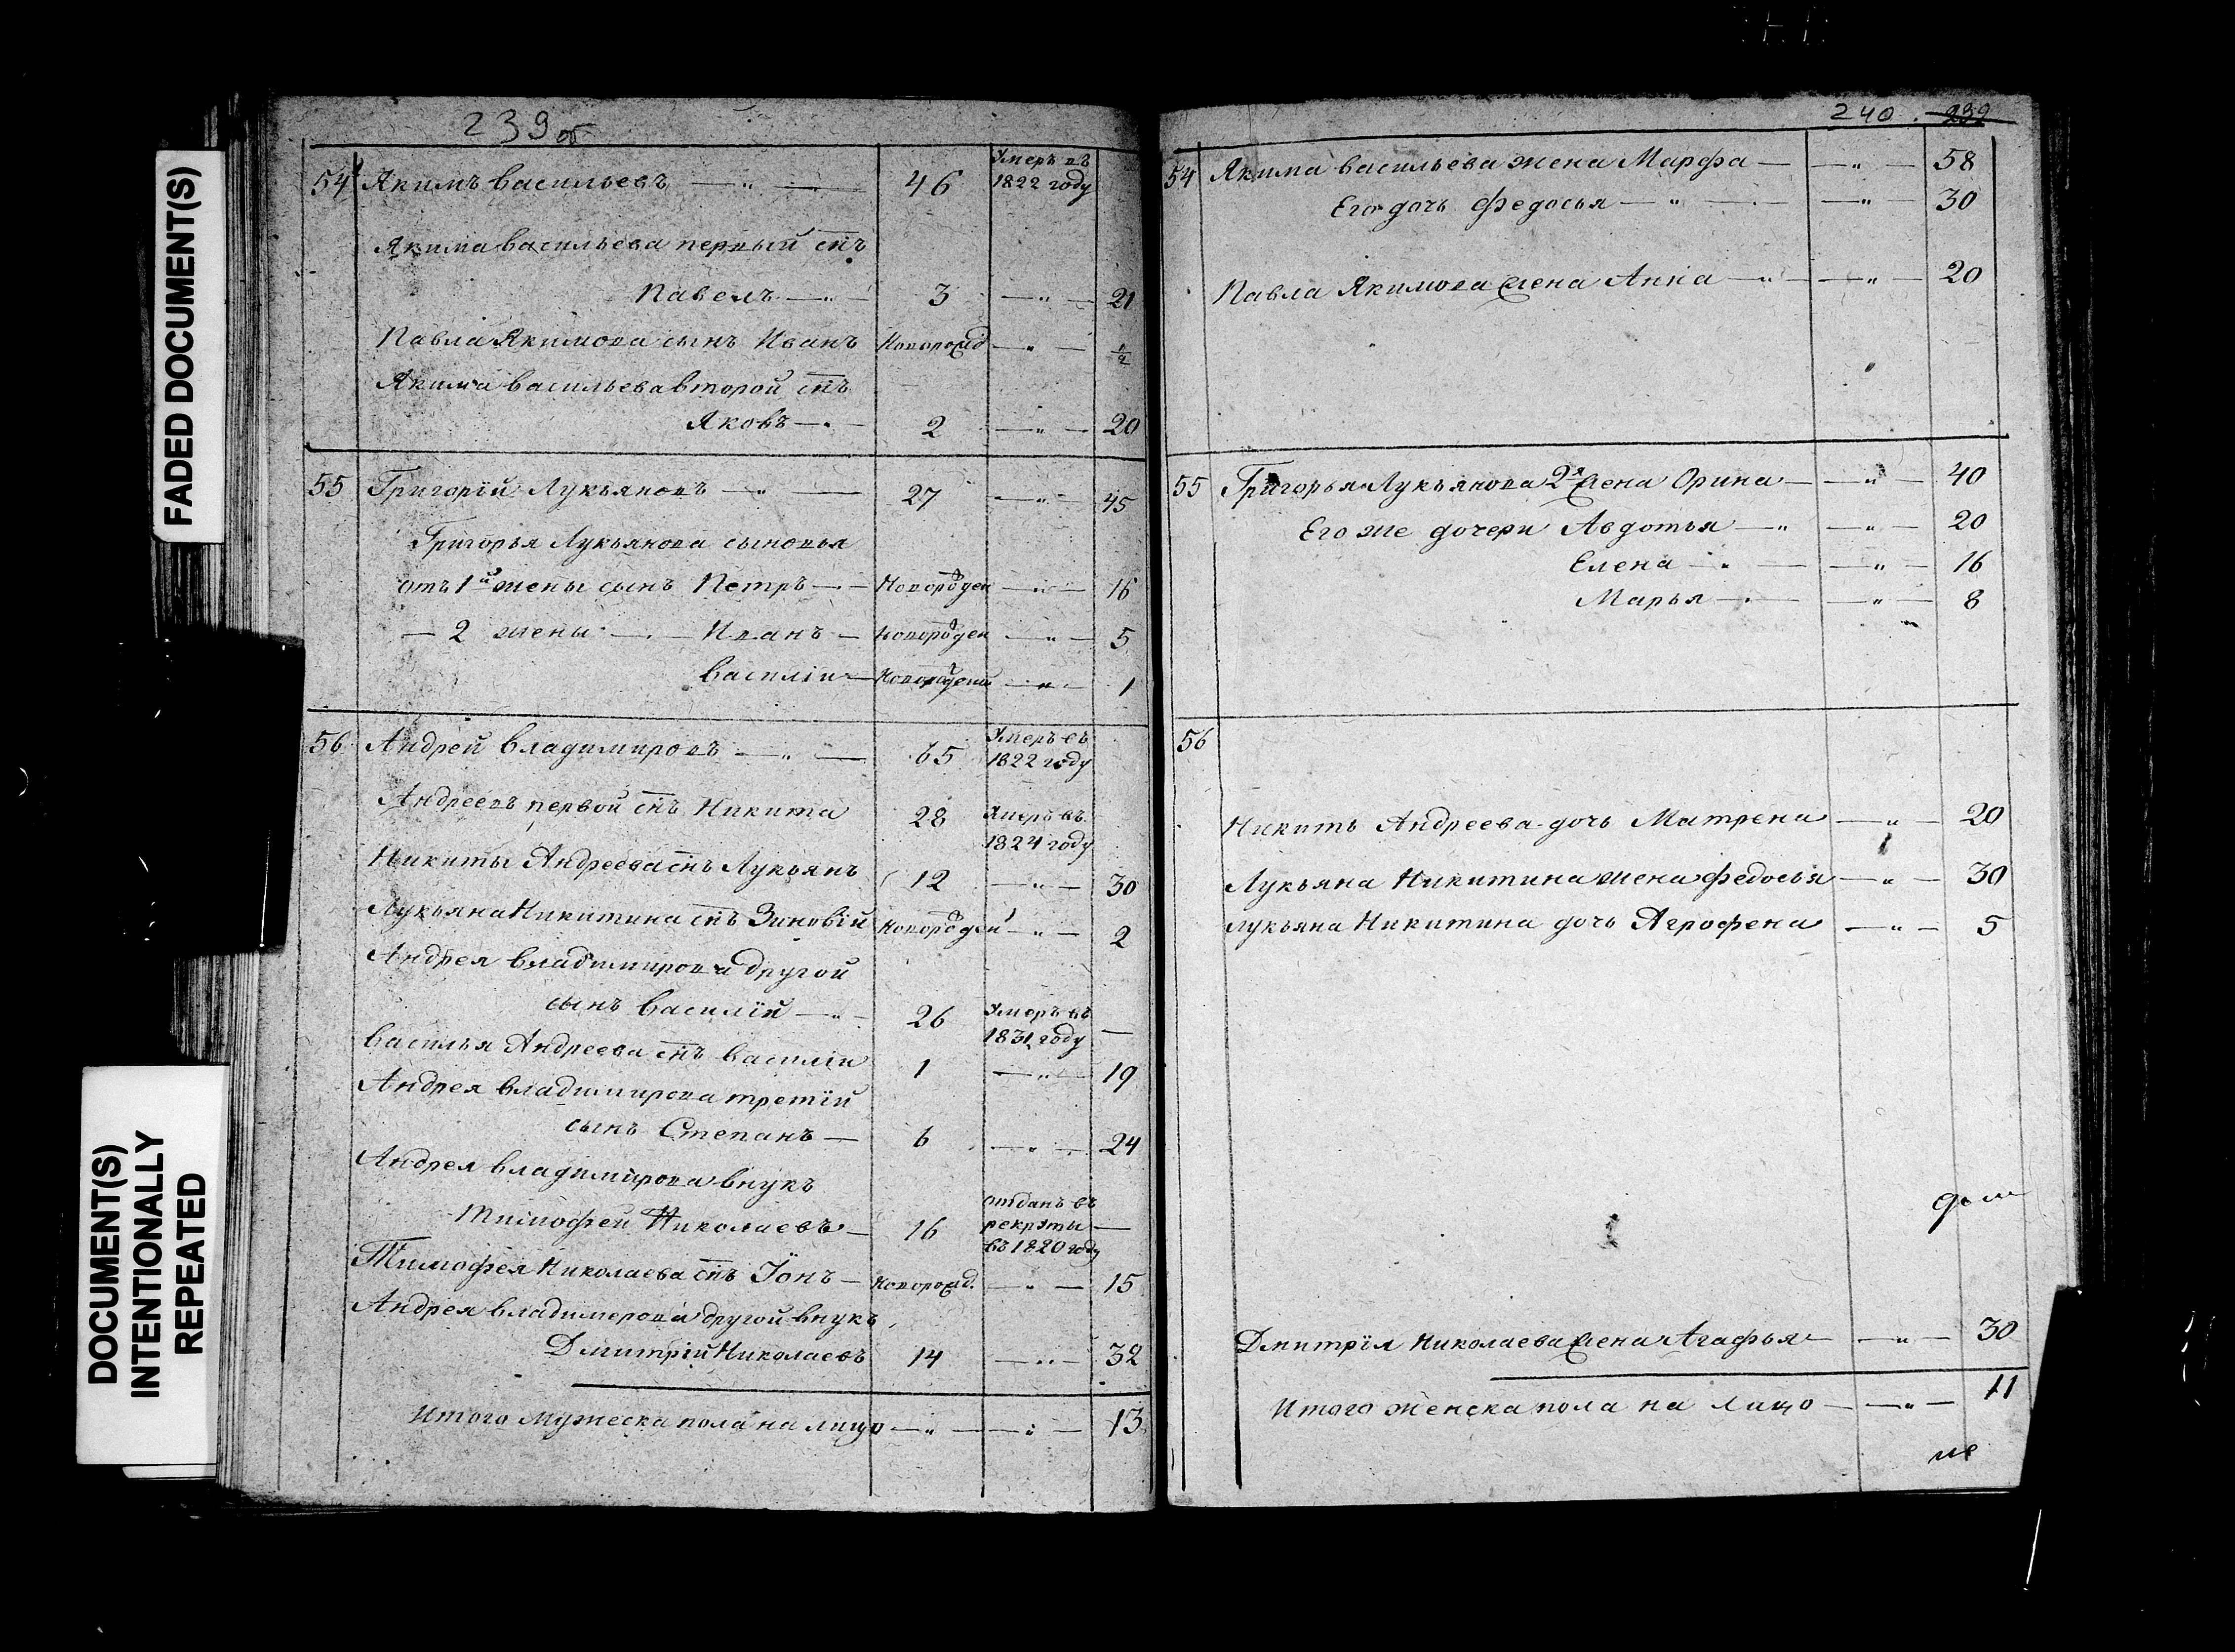 FADED DOCUMENT(S)
DOCUMENT(S)
INTENTIONALLY
REPEATED
239 об
54 Якимъ Васильевъ — „ — 46 Умеръ въ
1822 году
Якима Васильева первый снъ
Павелъ — „ — 3 — „ — 21
Павла Якимова сынъ Иванъ Новорожд — „ — 1/2
Якима Васильева второй снъ
Яковъ — „ — 2 — „ — 20
55 Григорій Лукьяновъ — „ — 27 — „ — 45
Григорья Лукьянова сыновья
отъ 1й жены сынъ Петръ — Новорожден — „ — 16
— 2 жены — „ — Иванъ — Новорожден — „ — 5
Василіи — Новорожден — „ — 1
56 Андрей Владимировъ — „ — 65 Умеръ въ
1822 году
Андреевъ первой снъ Никита 28 Умеръ въ
1824 году
Никиты Андреева снъ Лукьянъ 12 — „ — 30
Лукьяна Никитина снъ Зиновій Новорожден — „ — 2
Андрея Владимирова другой
сынъ Василій — „ — 26 Умеръ въ
1831 году —
Василья Андреева снъ Василіи 1 — „ — 19
Андрея Владимирова третій
сынъ Степанъ — 6 — „ — 24
Андрея Владимирова внукъ
Тимофей Николаевъ — 16 отданъ въ
рекруты —
въ 1820 году
Тимофея Николаева снъ Іонъ — Новорожд. — „ — 15
Андрея Владимерова другой внукъ
Дмитрій Николаевъ 14 — „ — 32
Итого мужеска пола на лицо — „ — „ — 13
240 . 239
54 Якима Васильева жена Марфа — — „ — 58
Его дочь Федосья — „ — — „ — 30
Павла Якимова жена Анна — „ — — „ — 20
55 Григорья Лукьянова 2я жена Орина — — „ — 40
Его же дочери Авдотья — „ — „ — 20
Елена — „ — — „ — 16
Марья — „ — — „ — 8
56
Никиты Андреева дочь Матрена — „ — 20
Лукьяна Никитина жена Федосья — „ — 30
Лукьяна Никитина дочь Агрофена — „ — 5
Дмитрія Николаева жена Агафья — — „ — 30
Итого женска пола на лицо — — „ — 11